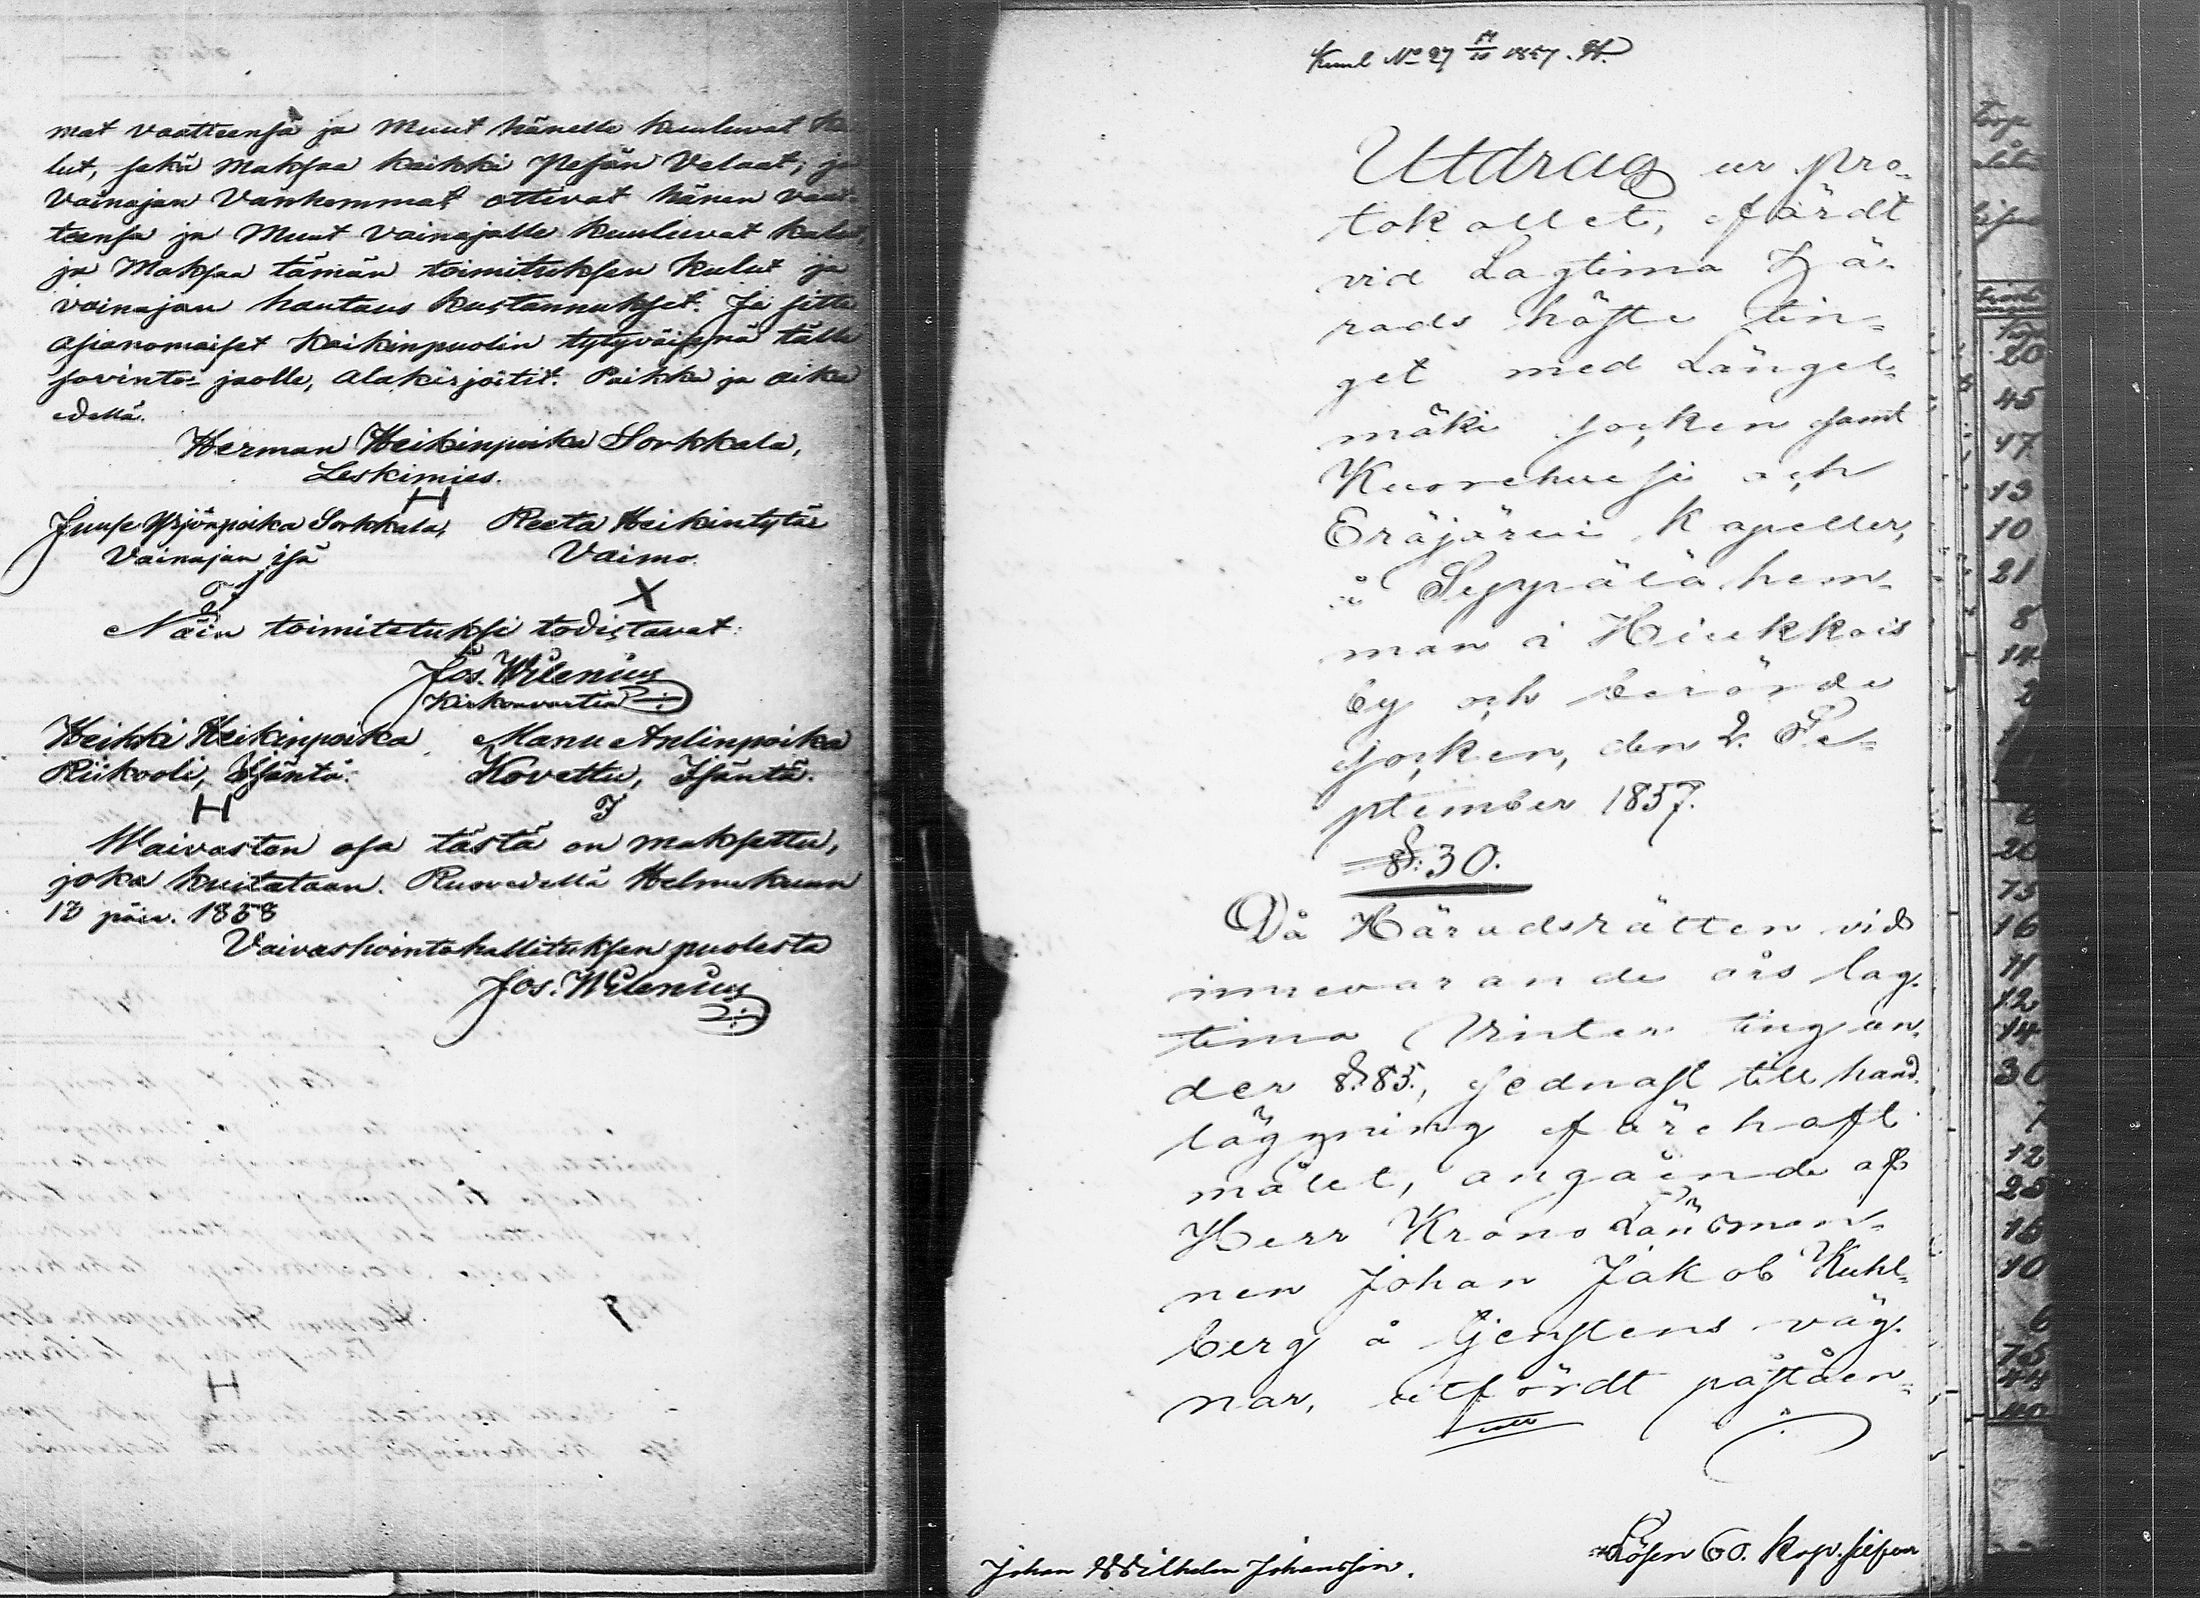 mat vaatteensa ja muut hänelle kuuluvat ka
lut, sekä maksaa kaikki Pesän Velaat; ja
Vainajan Vanhemmat ottivat hänen vaat-
teensa ja Muut Vainajalle kuuluvat kalut,
ja Maksaa tämän toimituksen kulut ja
vainajan hautaus kustannukset. Ja sitte
asianomaiset kaikinpuolin tytyväisenä tälle
sovinto-jaolle, alakirjoitit. Paikka ja aika
edellä.
Herman Heikinpoika Sorkkala,
Leskimies.
H
Juuse Yrjönpoika Sorkkala, Reeta Heikintytär
Vainajan isä Vaimo.
X
Näin toimitetuksi todistavat:
Jos. Wilenius
Kirkonvartia
Heikki Heikinpoika Manu Antinpoika
Riikooli, Isäntä. Kovettu, Isäntä.
H
Waivasten osa tästä on maksettu,
joka kuitataan. Ruovedellä Helmikuun
13 päiv. 1858
Vaivashointohallituksen puolesta
Jos. Wilenius
H
Kuul No 27 1857. H.
Utdrag ur pro-
tokollet, fördt
vid Lagtima Hä-
rads höste tin-
get med Längel-
mäki socken samt
Kuorehvesi och
Eräjärvi Kapeller,
å Seppälä hem-
man i Hiukkais
by och berörde
socken, den 2. Se-
ptember 1857.
§. 30.
Då Häradsrätten vid
innevarande års lag-
tima Vinter ting un-
der §. 85., sednast till hand-
läggning förehaft
målet, angående af
Herr Krono Länsman-
nen Johan Jakob Kuhl-
berg å tjenstens väg-
nar, utfördt påståen-
Johan Wilhelm Johansson.
Lösen 60. kop. silfver
20
45
17
13
10
21
8
14
2
20
75
16
11
12
14
30
7
12
25
15
10
6
75
44
40